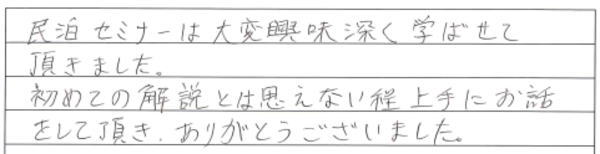 民泊セミナーは大変興味深く学ばせて
頂きました。
初めての解説とは思えない程上手にお話
をして頂き、ありがとうございました。